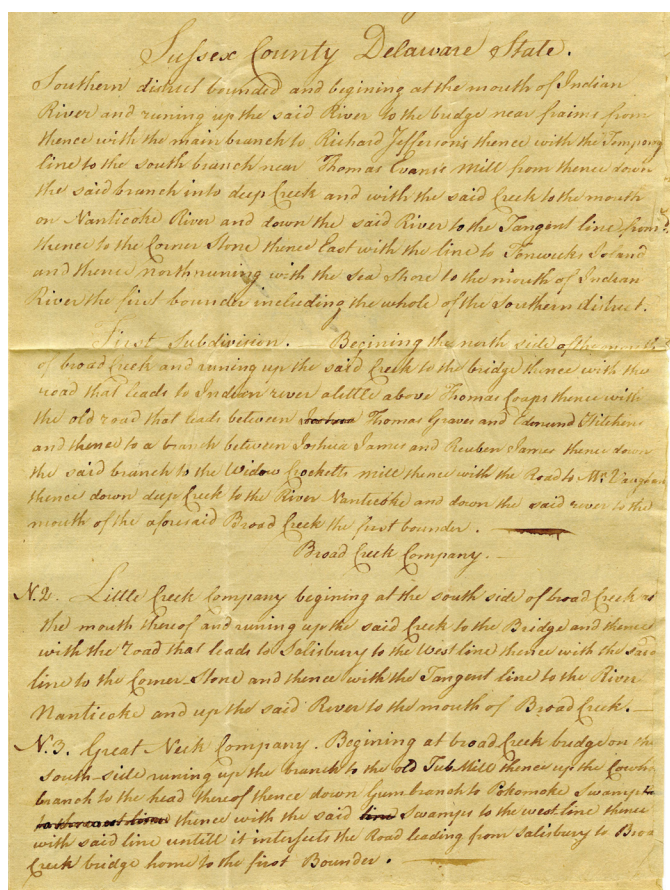 Sussex County Delaware State.
Southern district bounded and begining at the mouth of Indian
River and runing up the said River to the bridge near fraims from
thence with the main branch to Richard Jefferson's thence with the Tempory
line to the south branch near Thomas Evans's Mill from thence down
the said branch into deep Creek and with the said Creek to the mouth
on Nanticoke River and down the said River to the Tangent line from
thence to the Corner Stone thence East with the line to Fenweeks Island
and thence north runing with the Sea Shore to the mouth of Indian
River the first bounder including the whole of the Southern district.
First Subdivision. Begining the north side of the mouth
of broad Creek and runing up the said Creek to the bridge thence with the
road that leads to Indian river a little above Thomas Coaps thence with
the old road that leads between Joshua Thomas Graves and Edmund Hitchens
and thence to a branch between Joshua James and Reuben James thence down
the said branch to the Widow Crocketts mill thence with the Road to Wm. Vaughan
thence down deep Creek to the River Nanticoke and down the said rever to the
mouth of the aforesaid Broad Creek the first bounder.
Broad Creek Company.
N.2. Little Creek Company begining at the south side of broad Creek at
the mouth thereof and runing up the said Creek to the Bridge and thence
with the road that leads to Salisbury to the West line thence with the said
line to the Corner-Stone and thence with the Tangent line to the River
Nanticoke and up the said River to the mouth of Broad Creek.
N.3. Great Neck Company. Begining at broad Creek bridge on the
south-side runing up the branch to the old Tub Mill thence up the
branch to the head thereof thence down Gum branch to Pokomoke Swamp
thence with the said line Swamps to the west line thence
with said line untill it intersects the Road leading from Salisbury to Broa
Creek bridge home to the first Bounder.